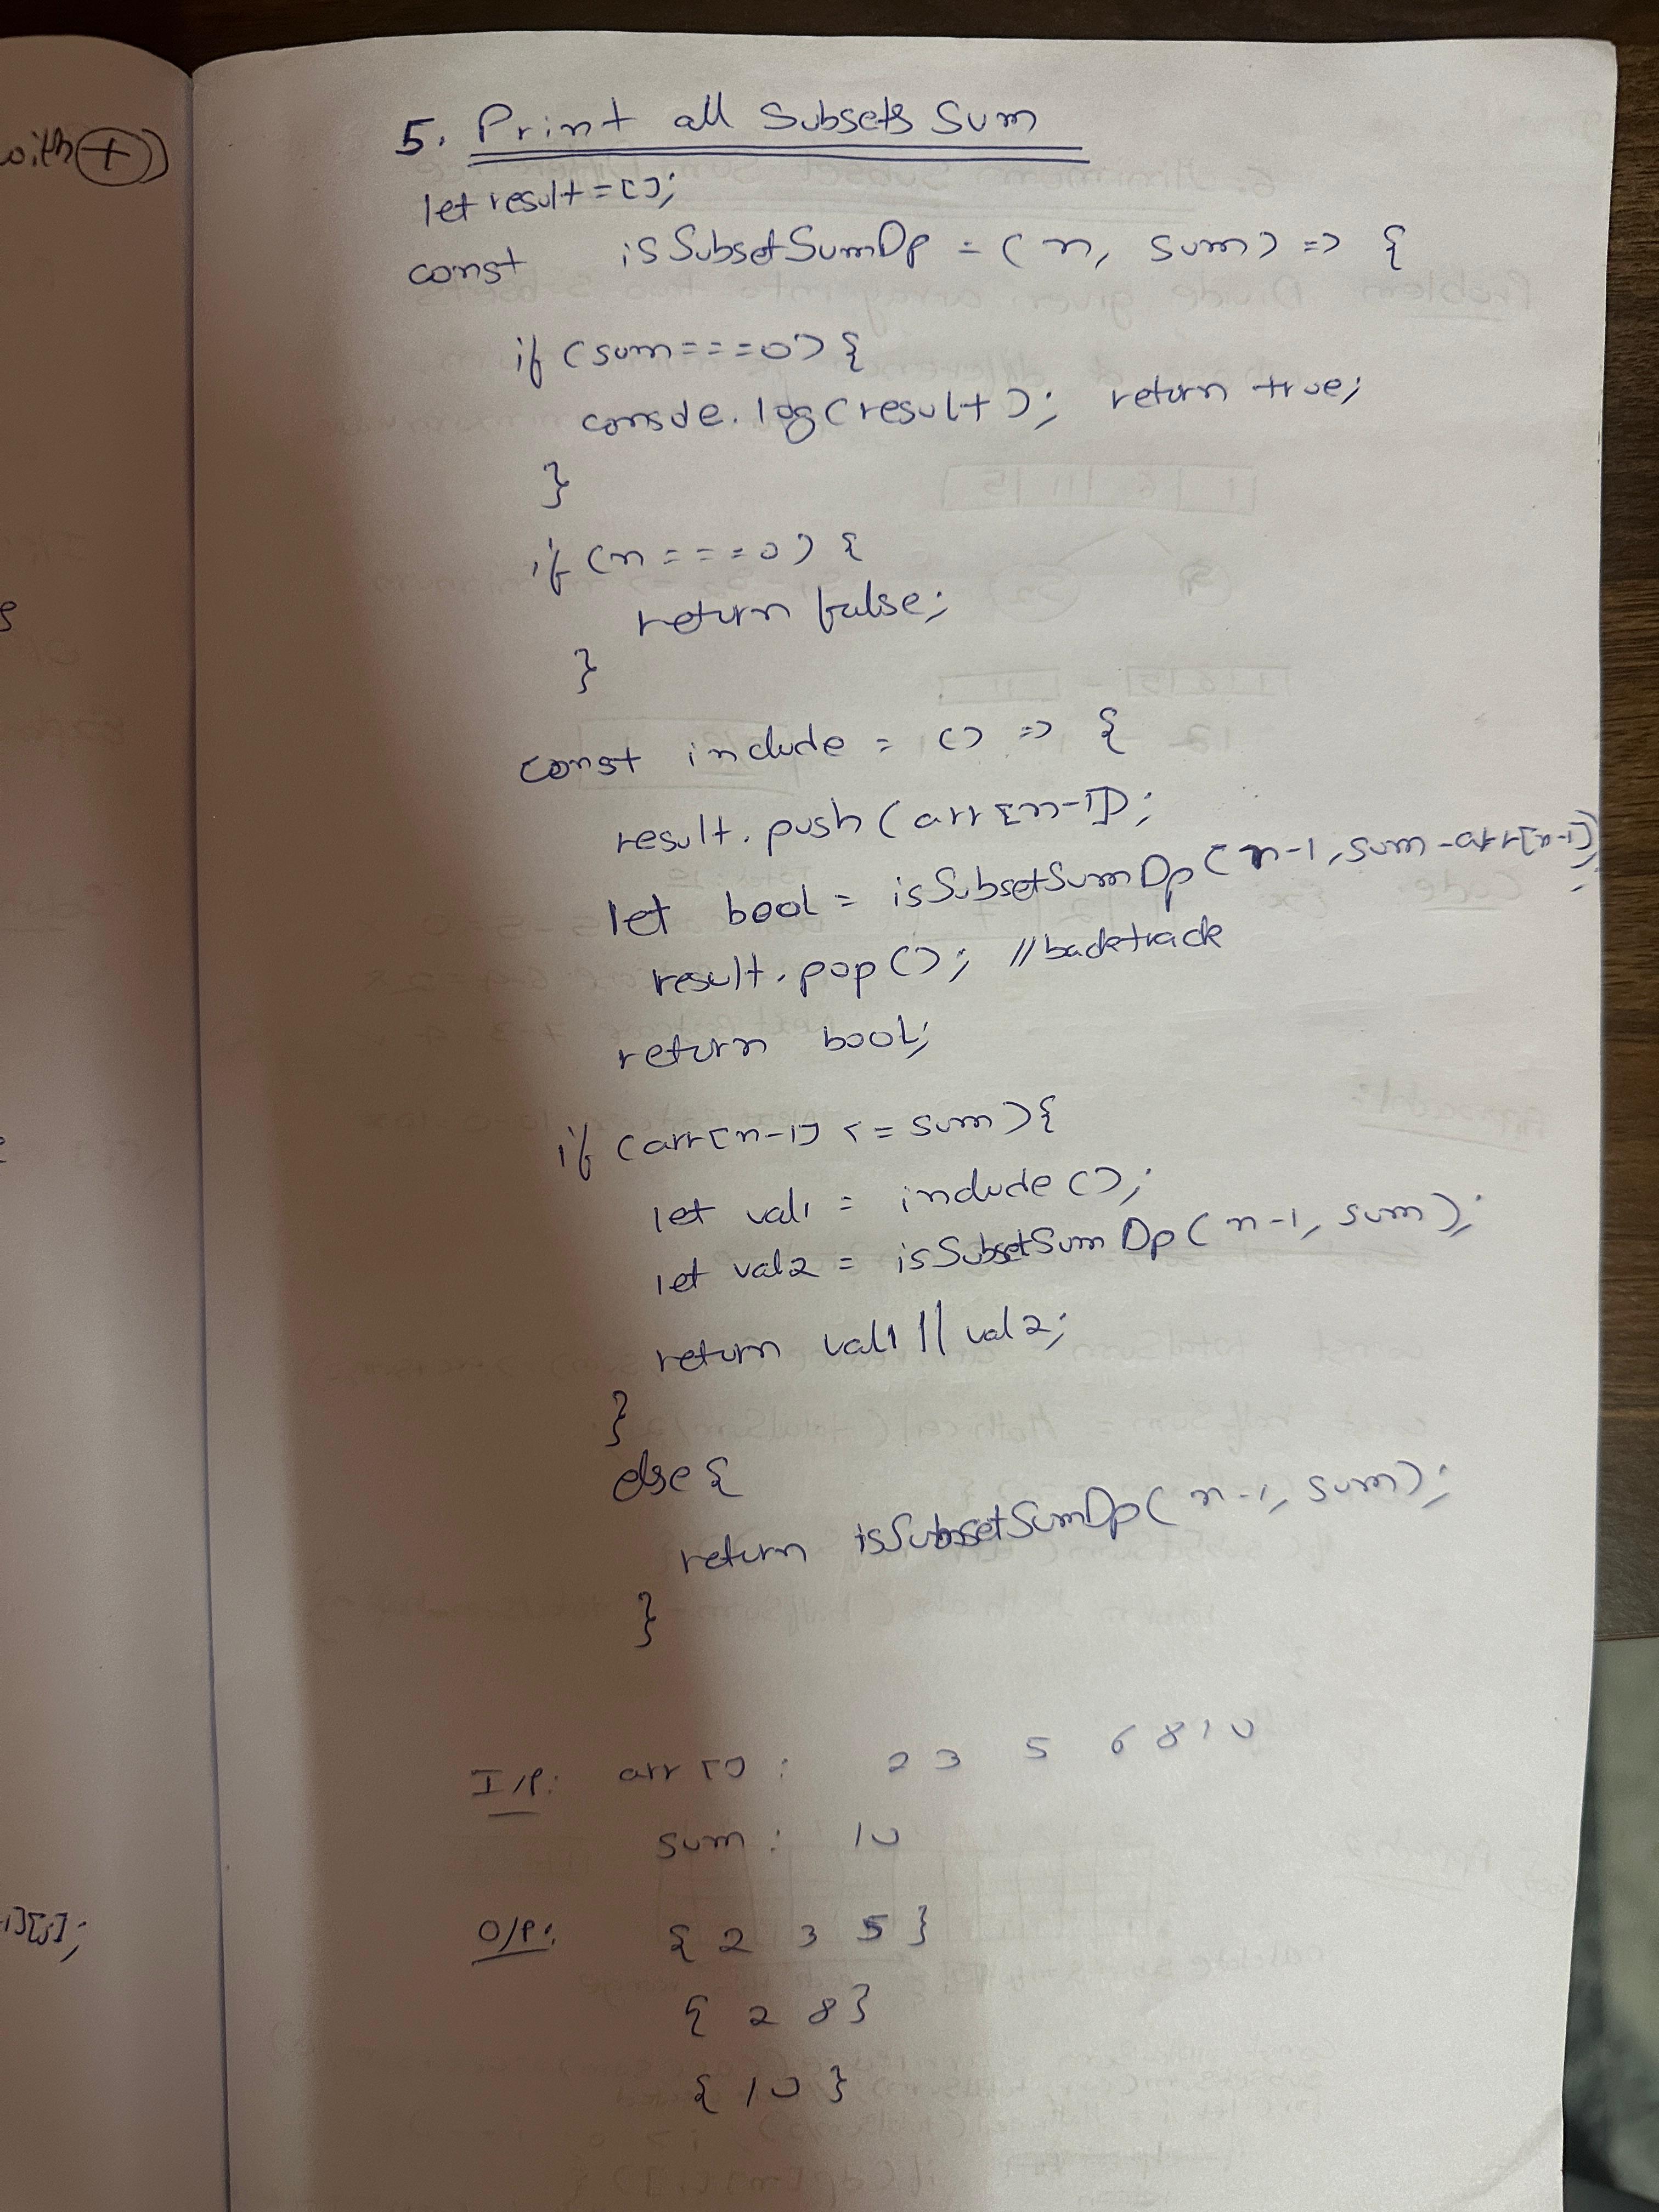 with +)
5. Print all Subsets Sum
let result = [];
const isSubsetSumDp = (n, sum) => {
if (sum===0) {
console.log(result); return true;
}
if (n===0) {
return false;
}
const include = () => {
result.push(arr[n-1]);
let bool = isSubsetSumDp(n-1, sum-arr[n-1]);
result.pop(); // backtrack
return bool;
if (arr[n-1] <= sum){
let val1 = include();
let val2 = isSubsetSumDp(n-1, sum);
return val1 || val2;
}
else {
return isSubsetSumDp(n-1, sum);
}
I/P: arr[] : 2 3 5 6 8 10
sum : 10
][j];
O/P: { 2 3 5 }
{ 2 8 }
{ 10 }